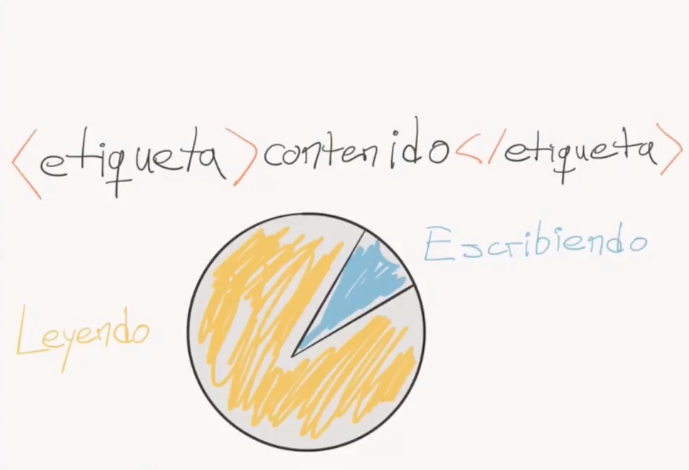 <etiqueta>contenido</etiqueta>
Escribiendo
Leyendo